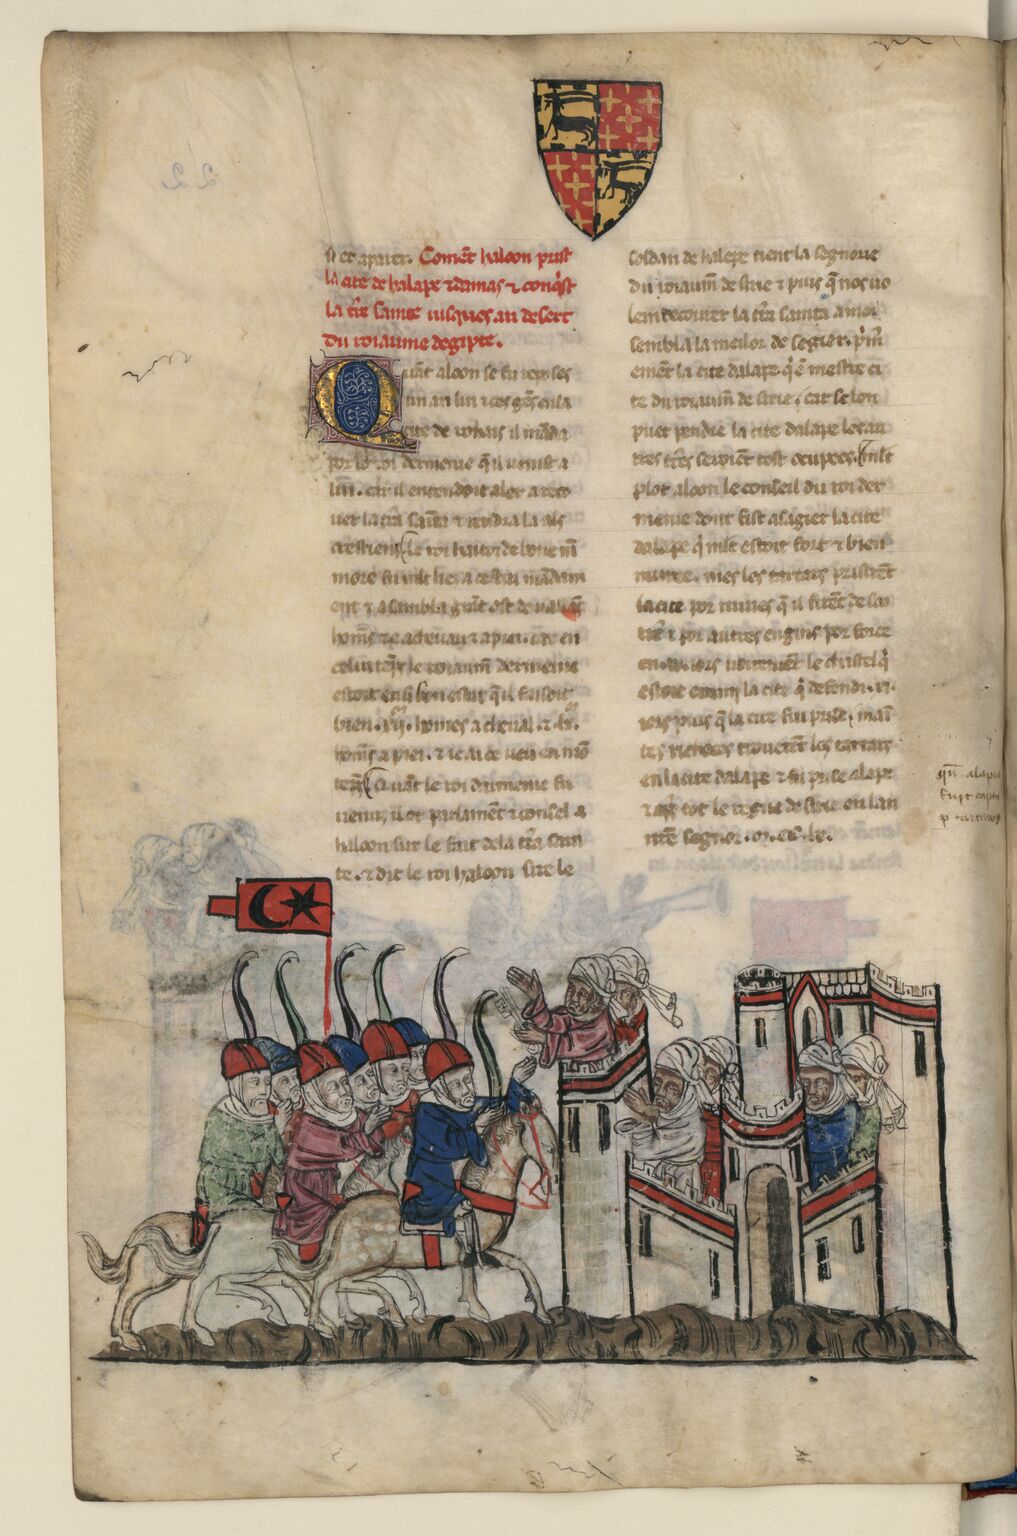 Coment haloon prist
la cite de halape & damas & conq̓st
la t̓re sainte iusques au desert
du roiaume degipte.
Quāt aloon se fu repo ses
un an lui & ces gēs en la
cite de rohais il māda
por le roi dermenie q̄ il uenist a
lui. car il entendoit aler a reco
urer la t̓ra sāta & rendra la als
crestiens le roi haiton de bone m̄
more fu mlt lie a cestui mādam
ent & asambla grāt ost de
homēs a cheuau & a piei. car en
celui tēps le roiaum̄ dermenie
estoit en si bon estat q̄ il faisoit
bien .xii. homes a cheual. & .lx.
homēs a piei. & ie ai ce ueu en mō
tēps Quāt le roi darmenie fu
uenu, il ot parlamēt & consel a
haloon sur le fait de la t̓ra sain
te. & dit le roi haloon sire le
soldan de halepe tient la segnorie
du roiaum̄ de sirie & puis q̄ nos uo
lem recourer la t̓ra sainta a moi
sembla la meilor de segier. p̓m̓
ement la cite dalape. q̓ ē mestre ci
te du roiaum̄ de sirie, car se lon
puet pendre la cite dalape les au
tres t̓res seroiēt tost ocupees. mlt
plot aloon le conseil du roi der
menie dont fist asagier la cite
dalape q̓ mlt estoit fort & bien
muree. mes les tartars pristrēt
la cite por mines q̄ il firēt de soz
t̓re & por autres engins por force
en .ix. iors uenremēt le chastel q̓
estoit enmi la cite q̓ defendi .xi.
iors plus q̄ la cite fu prise, mant
tes richeces trouerēt les tartars
en la cite dalape & fu prise alape
& apres tot le regne de sirie en lan
nr̄e segnor. m. cc. lx.
qn̄ alapia
fuit capta
p tartaros